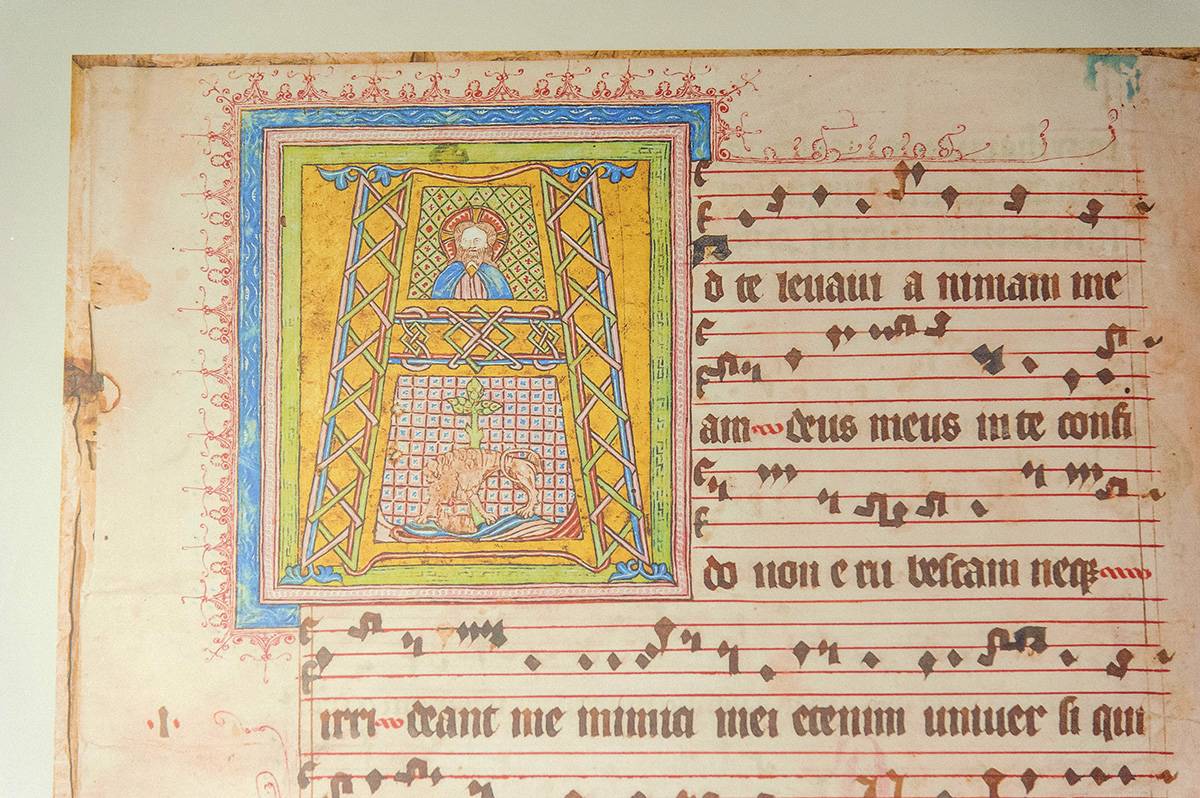 A
d te leuaui a nimam me
am deus meus in te confi
do non e ru bescam neqꝫ
irri deant me inimici mei etenim uniuer si qui